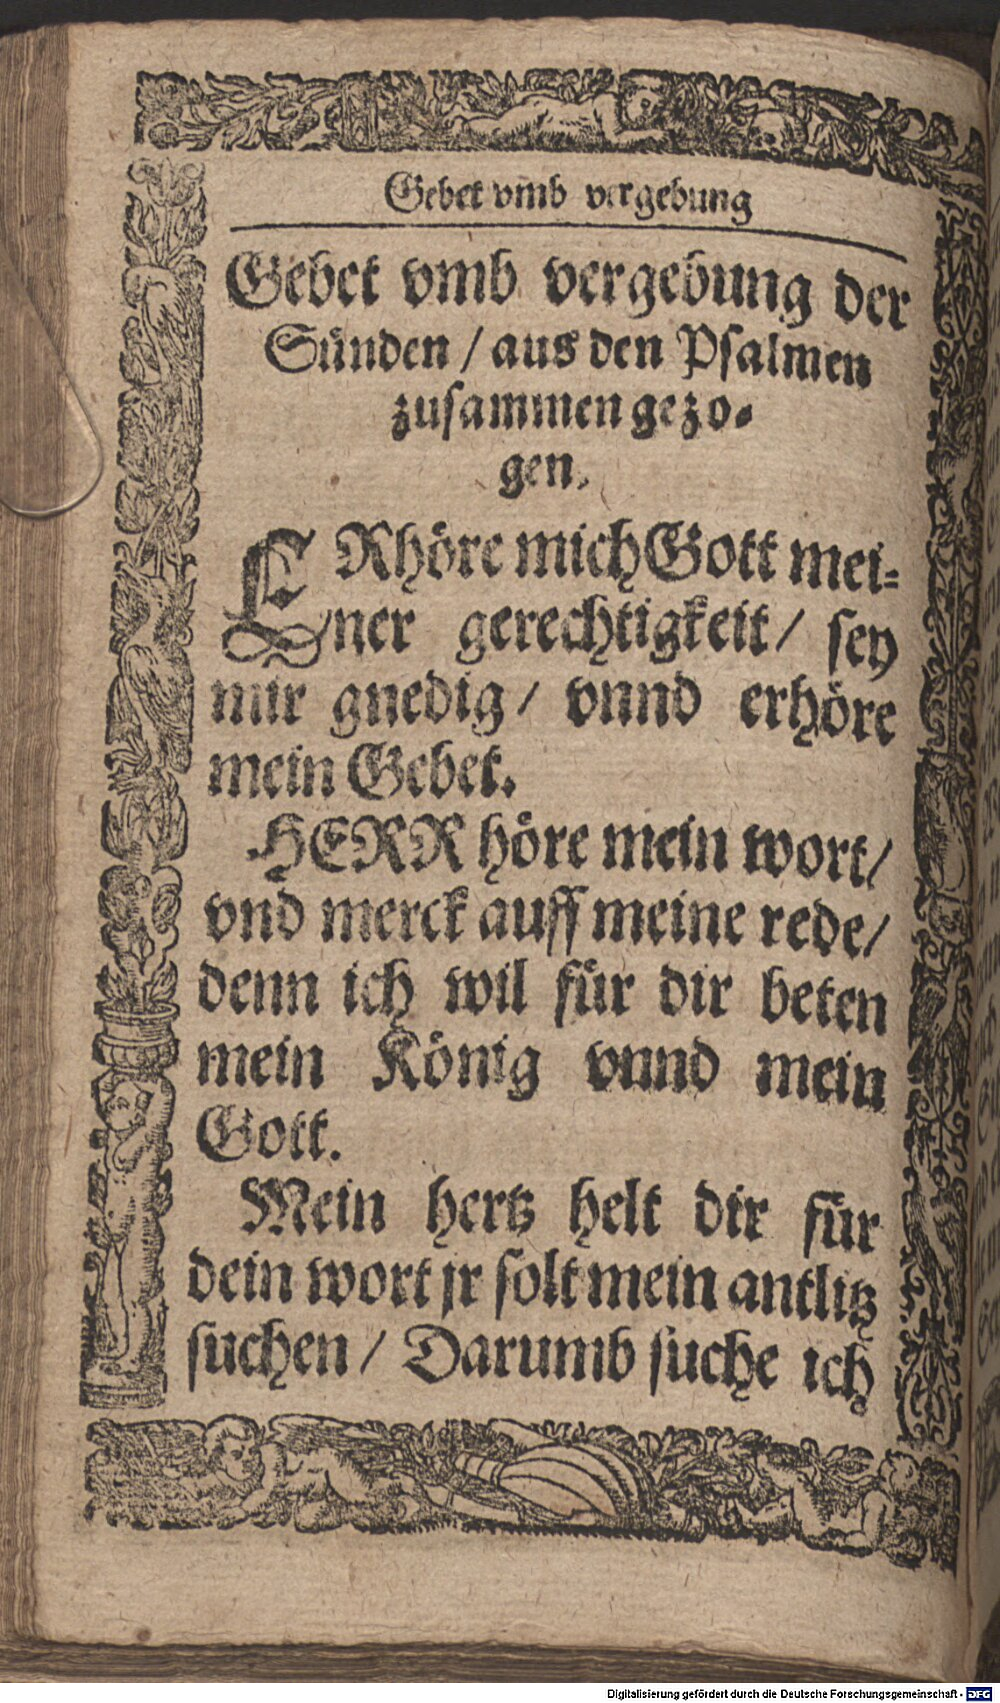 Gebet vmb vergebung
Gebet vmb vergebung der
Sünden / aus den Psalmen
zusammen gezo-
gen.
ERhöre mich Gott mei-
ner gerechtigkeit / sey
mir gnedig / vnnd erhöre
mein Gebet.
HERR höre mein wort /
vnd merck auff meine rede /
denn ich wil für dir beten
mein König vnnd mein
Gott.
Mein hertz helt dir für
dein wort jr solt mein antlitz
suchen / Darumb suche ich
Digitalisierung gefördert durch die Deutsche Forschungsgemeinschaft - DFG